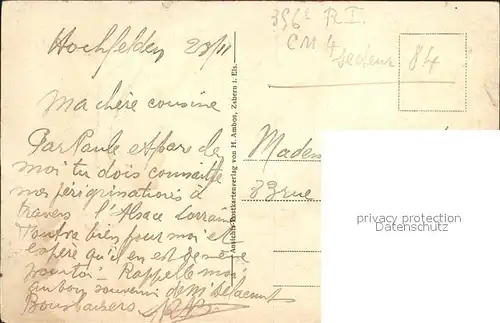 Hochfelden 23/11
356e R.I.
CM 4
secteur 84
Ma chère cousine
Par Paule et par de
moi tu dois connaître
mes pérégrinations à
travers l'Alsace Lorraine
Tout va bien pour moi et
espère qu'il en est de même
pour toi - Rappelle moi
au bon souvenir de Mr Delacourt
Bons baisers
Ansichts-Postkartenverlag von H. Ambos, Zabern i. Els.
Madem
3 Brue
privacy protection
Datenschutz